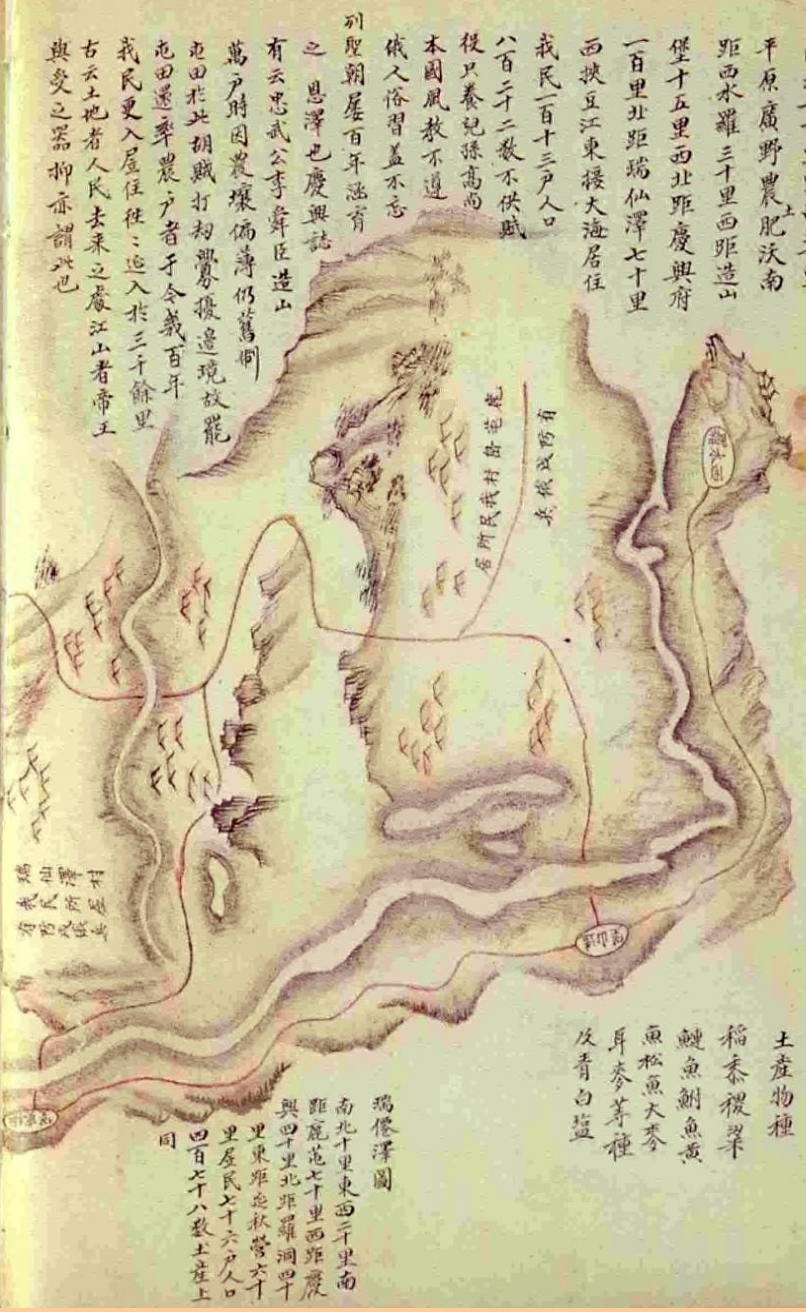 平原廣野農肥沃南
土
距西水羅三十里西距造山
堡十五里西北距慶興府
一百里北距瑞仙澤七十里
西挾豆江東接大海居住
我民一百十三戶人口
八百二十二数不供賦
役只養兒孫高尚
本國風教不遵
俄人俗習盖不忘
列聖朝屢百年涵育
之 恩澤也慶興誌
有云忠武公李舜臣造山
萬戶時因農壤偏薄仍舊例
屯田於此胡賊打刼擾邊境故罷
屯田還率農户者于今幾百年
我民更入居住往〻延入於三千餘里
古云土地者人民去来之處江山者帝王
與受之器抑亦謂此也
有防戍俄兵
鹿芚島村我民所居
瑞仙澤村
我民所居
有防戍俄兵
土産物種
稻黍稷粱
鰱魚鮒魚黄
魚松魚大麥
耳麥等種
及青白塩
瑞僊澤圖
南北十里東西二十里南
距鹿芚七十里西距慶
興四十里北距羅洞四十
里東距延秋營六十
里居民七十六戶人口
四百七十八数土産上
同